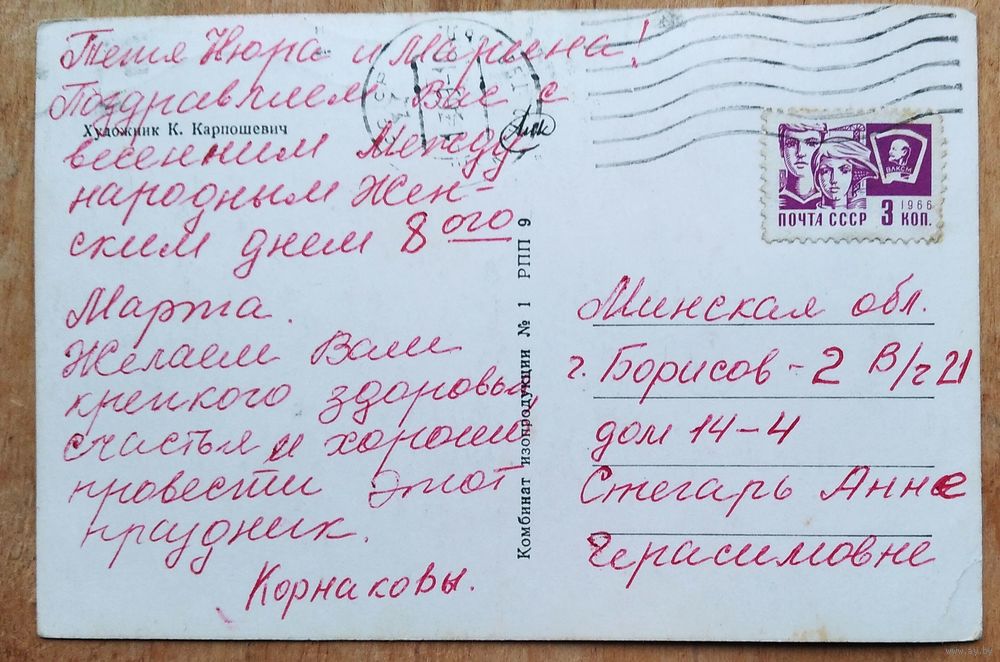 Тетя Нюра и Марина!
Поздравляем Вас с
Художник К. Карпошевич
весенним Между
народным Жен-
ским днем 8ого
Марта.
Желаем Вам
крепкого здоровья,
счастья и хорошо
провести этот
праздник.
Корнаковы.
Комбинат изопродукции № 1 РПП 9
ВЛКСМ
1966
ПОЧТА СССР 3 КОП.
Минская обл.
г. Борисов - 2 В/ч 21
дом 14-4
Стегарь Анне
Герасимовне
www.ay.by